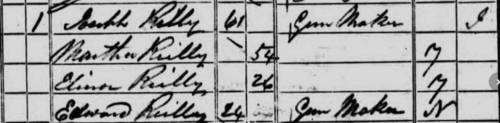 1 Joseph Reilly 61 Gun Maker I
Martha Reilly 54 y
Elinor Reilly 26 y
Edward Reilly 24 Gun Maker N